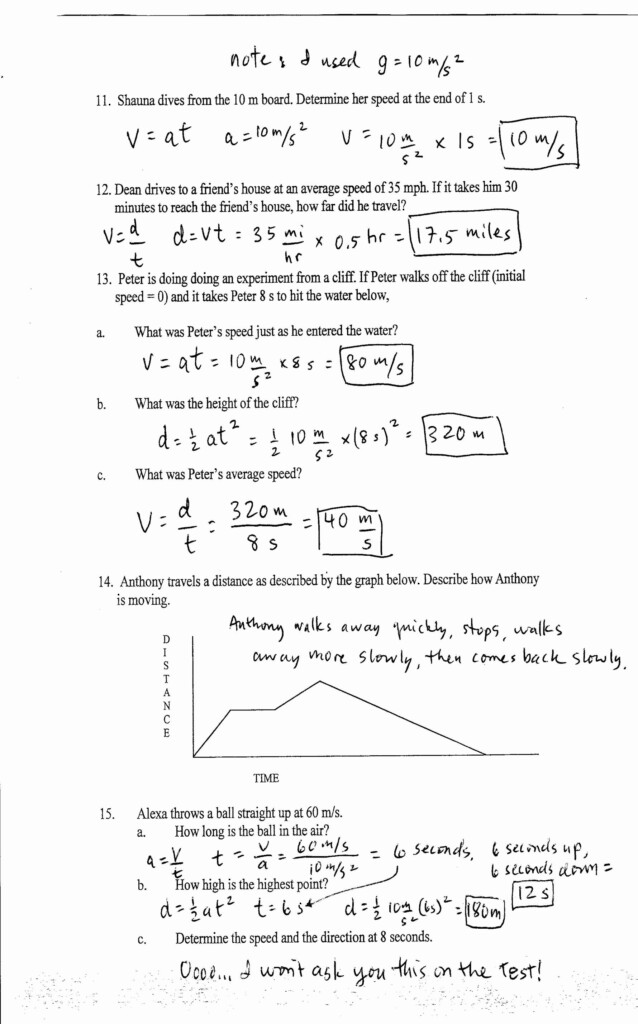 note: I used g = 10 m/s²
11. Shauna dives from the 10 m board. Determine her speed at the end of 1 s.
V = at a = 10 m/s² V = 10 m/s² × 1s = 10 m/s
12. Dean drives to a friend's house at an average speed of 35 mph. If it takes him 30
minutes to reach the friend's house, how far did he travel?
V = d/t d = Vt = 35 mi/hr × 0.5 hr = 17.5 miles
13. Peter is doing doing an experiment from a cliff. If Peter walks off the cliff (initial
speed = 0) and it takes Peter 8 s to hit the water below,
a. What was Peter's speed just as he entered the water?
V = at = 10 m/s² × 8 s = 80 m/s
b. What was the height of the cliff?
d = ½ at² = ½ 10 m/s² × (8 s)² = 320 m
c. What was Peter's average speed?
V = d/t = 320 m/8 s = 40 m/s
14. Anthony travels a distance as described by the graph below. Describe how Anthony
is moving.
Anthony walks away quickly, stops, walks
away more slowly, then comes back slowly.
DISTANCE
TIME
15. Alexa throws a ball straight up at 60 m/s.
a. How long is the ball in the air?
a = V/t t = V/a = 60 m/s / 10 m/s² = 6 seconds. 6 seconds up,
6 seconds down =
12 s
b. How high is the highest point?
d = ½ at² t = 6 s d = ½ 10 m/s² (6s)² = 180m
c. Determine the speed and the direction at 8 seconds.
Oooo... I won't ask you this on the test!